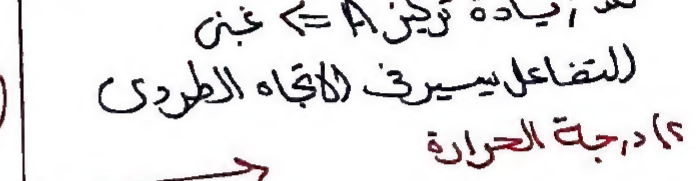 زيادة تركيز A <= غني
التفاعل يسير في الاتجاه الطردي
٢) درجة الحرارة